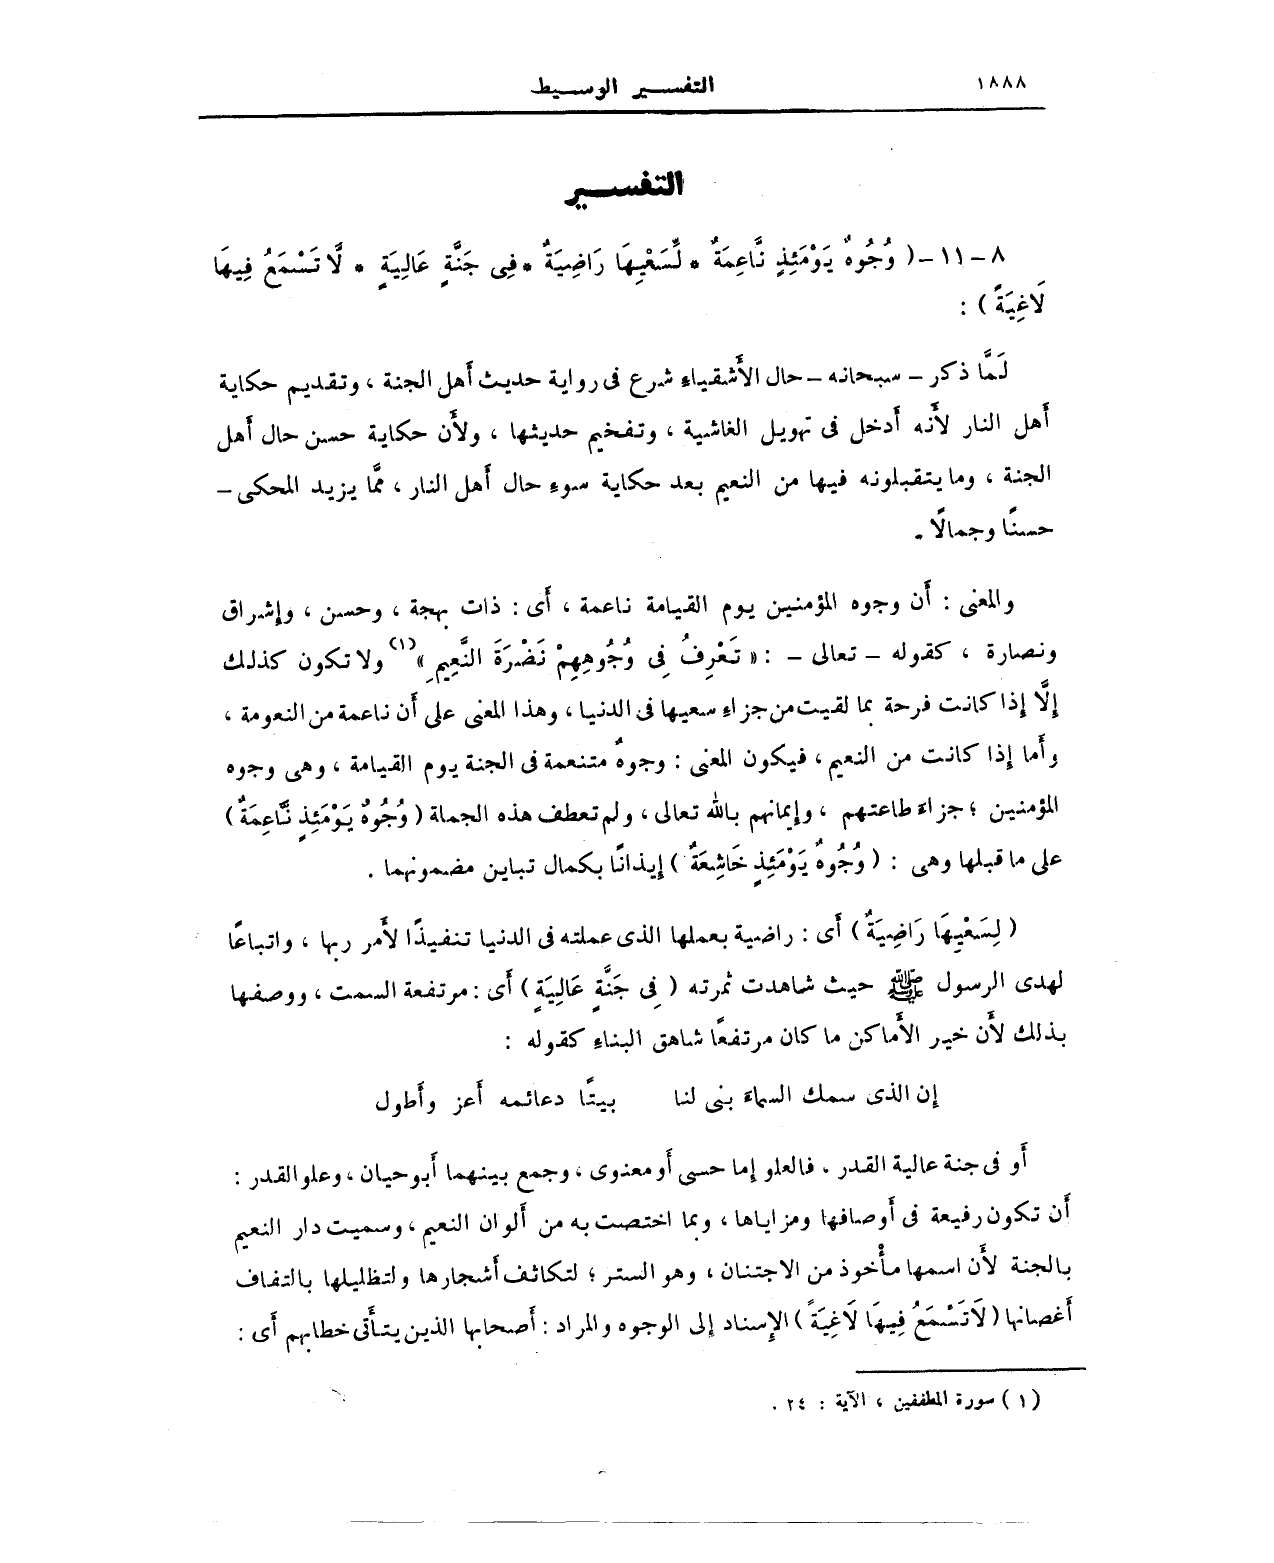 ١٨٨٨ التفسير الوسيط
التفسير
٨ – ١١ – ( وُجُوهٌ يَوْمَئِذٍ نَّاعِمَةٌ * لِّسَعْيِهَا رَاضِيَةٌ * فِى جَنَّةٍ عَالِيَةٍ * لَّا تَسْمَعُ فِيهَا
لَاغِيَةً ) :
لَمَّا ذكر – سبحانه – حال الأَشقياءِ شرع فى رواية حديث أهل الجنة ، وتقديم حكاية
أَهل النار لأَنه أَدخل فى تهويل الغاشية ، وتفخيم حديثها ، ولأَن حكاية حسن حال أَهل
الجنة ، وما يتقبلونه فيها من النعيم بعد حكاية سوءِ حال أَهل النار ، ممَّا يزيد المحكى –
حسنًا وجمالًا .
والمعنى : أَن وجوه المؤمنين يوم القيامة ناعمة ، أَى : ذات بهجة ، وحسن ، وإشراق
ونصارة ، كقوله – تعالى – : « تَعْرِفُ فِى وُجُوهِهِمْ نَضْرَةَ النَّعِيمِ » (١) ولا تكون كذلك
إلَّا إذا كانت فرحة بما لقيت من جزاءِ سعيها فى الدنيا ، وهذا المعنى على أَن ناعمة من النعومة ،
وأَما إذا كانت من النعيم ، فيكون المعنى : وجوهٌ متنعمة فى الجنة يوم القيامة ، وهى وجوه
المؤمنين ؛ جزاءَ طاعتهم ، وإيمانهم بالله تعالى ، ولم تعطف هذه الجملة ( وُجُوهٌ يَوْمَئِذٍ نَّاعِمَةٌ )
على ما قبلها وهى : ( وُجُوهٌ يَوْمَئِذٍ خَاشِعَةٌ ) إيذانًا بكمال تباين مضمونهما .
( لِسَعْيِهَا رَاضِيَةٌ ) أَى : راضية بعملها الذى عملته فى الدنيا تنفيذًا لأَمر ربها ، واتباعًا
لهدى الرسول ﷺ حيث شاهدت ثمرته ( فِى جَنَّةٍ عَالِيَةٍ ) أَى : مرتفعة السمت ، ووصفها
بذلك لأَن خير الأَماكن ما كان مرتفعًا شاهق البناءِ كقوله :
إن الذى سمك السماءَ بنى لنا بيتًا دعائمه أَعز وأَطول
أَو فى جنة عالية القدر . فالعلو إما حسى أَو معنوى ، وجمع بينهما أَبو حيان ، وعلو القدر :
أَن تكون رفيعة فى أَوصافها ومزاياها ، وبما اختصت به من أَلوان النعيم ، وسميت دار النعيم
بالجنة لأَن اسمها مأْخوذ من الاجتنان ، وهو الستر ؛ لتكاثف أَشجارها ولتظليلها بالتفاف
أَغصانها ( لَا تَسْمَعُ فِيهَا لَاغِيَةً ) الإسناد إلى الوجوه والمراد : أَصحابها الذين يتأَتى خطابهم أَى :
( ١ ) سورة المطففين ، الآية : ٢٤ .